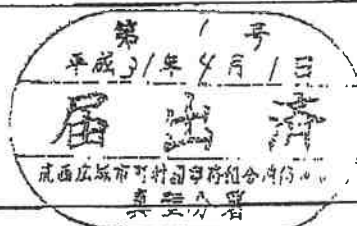 第 1 号
平成31年4月1日
届出済
西広域市町村圏事務組合
真壁分署